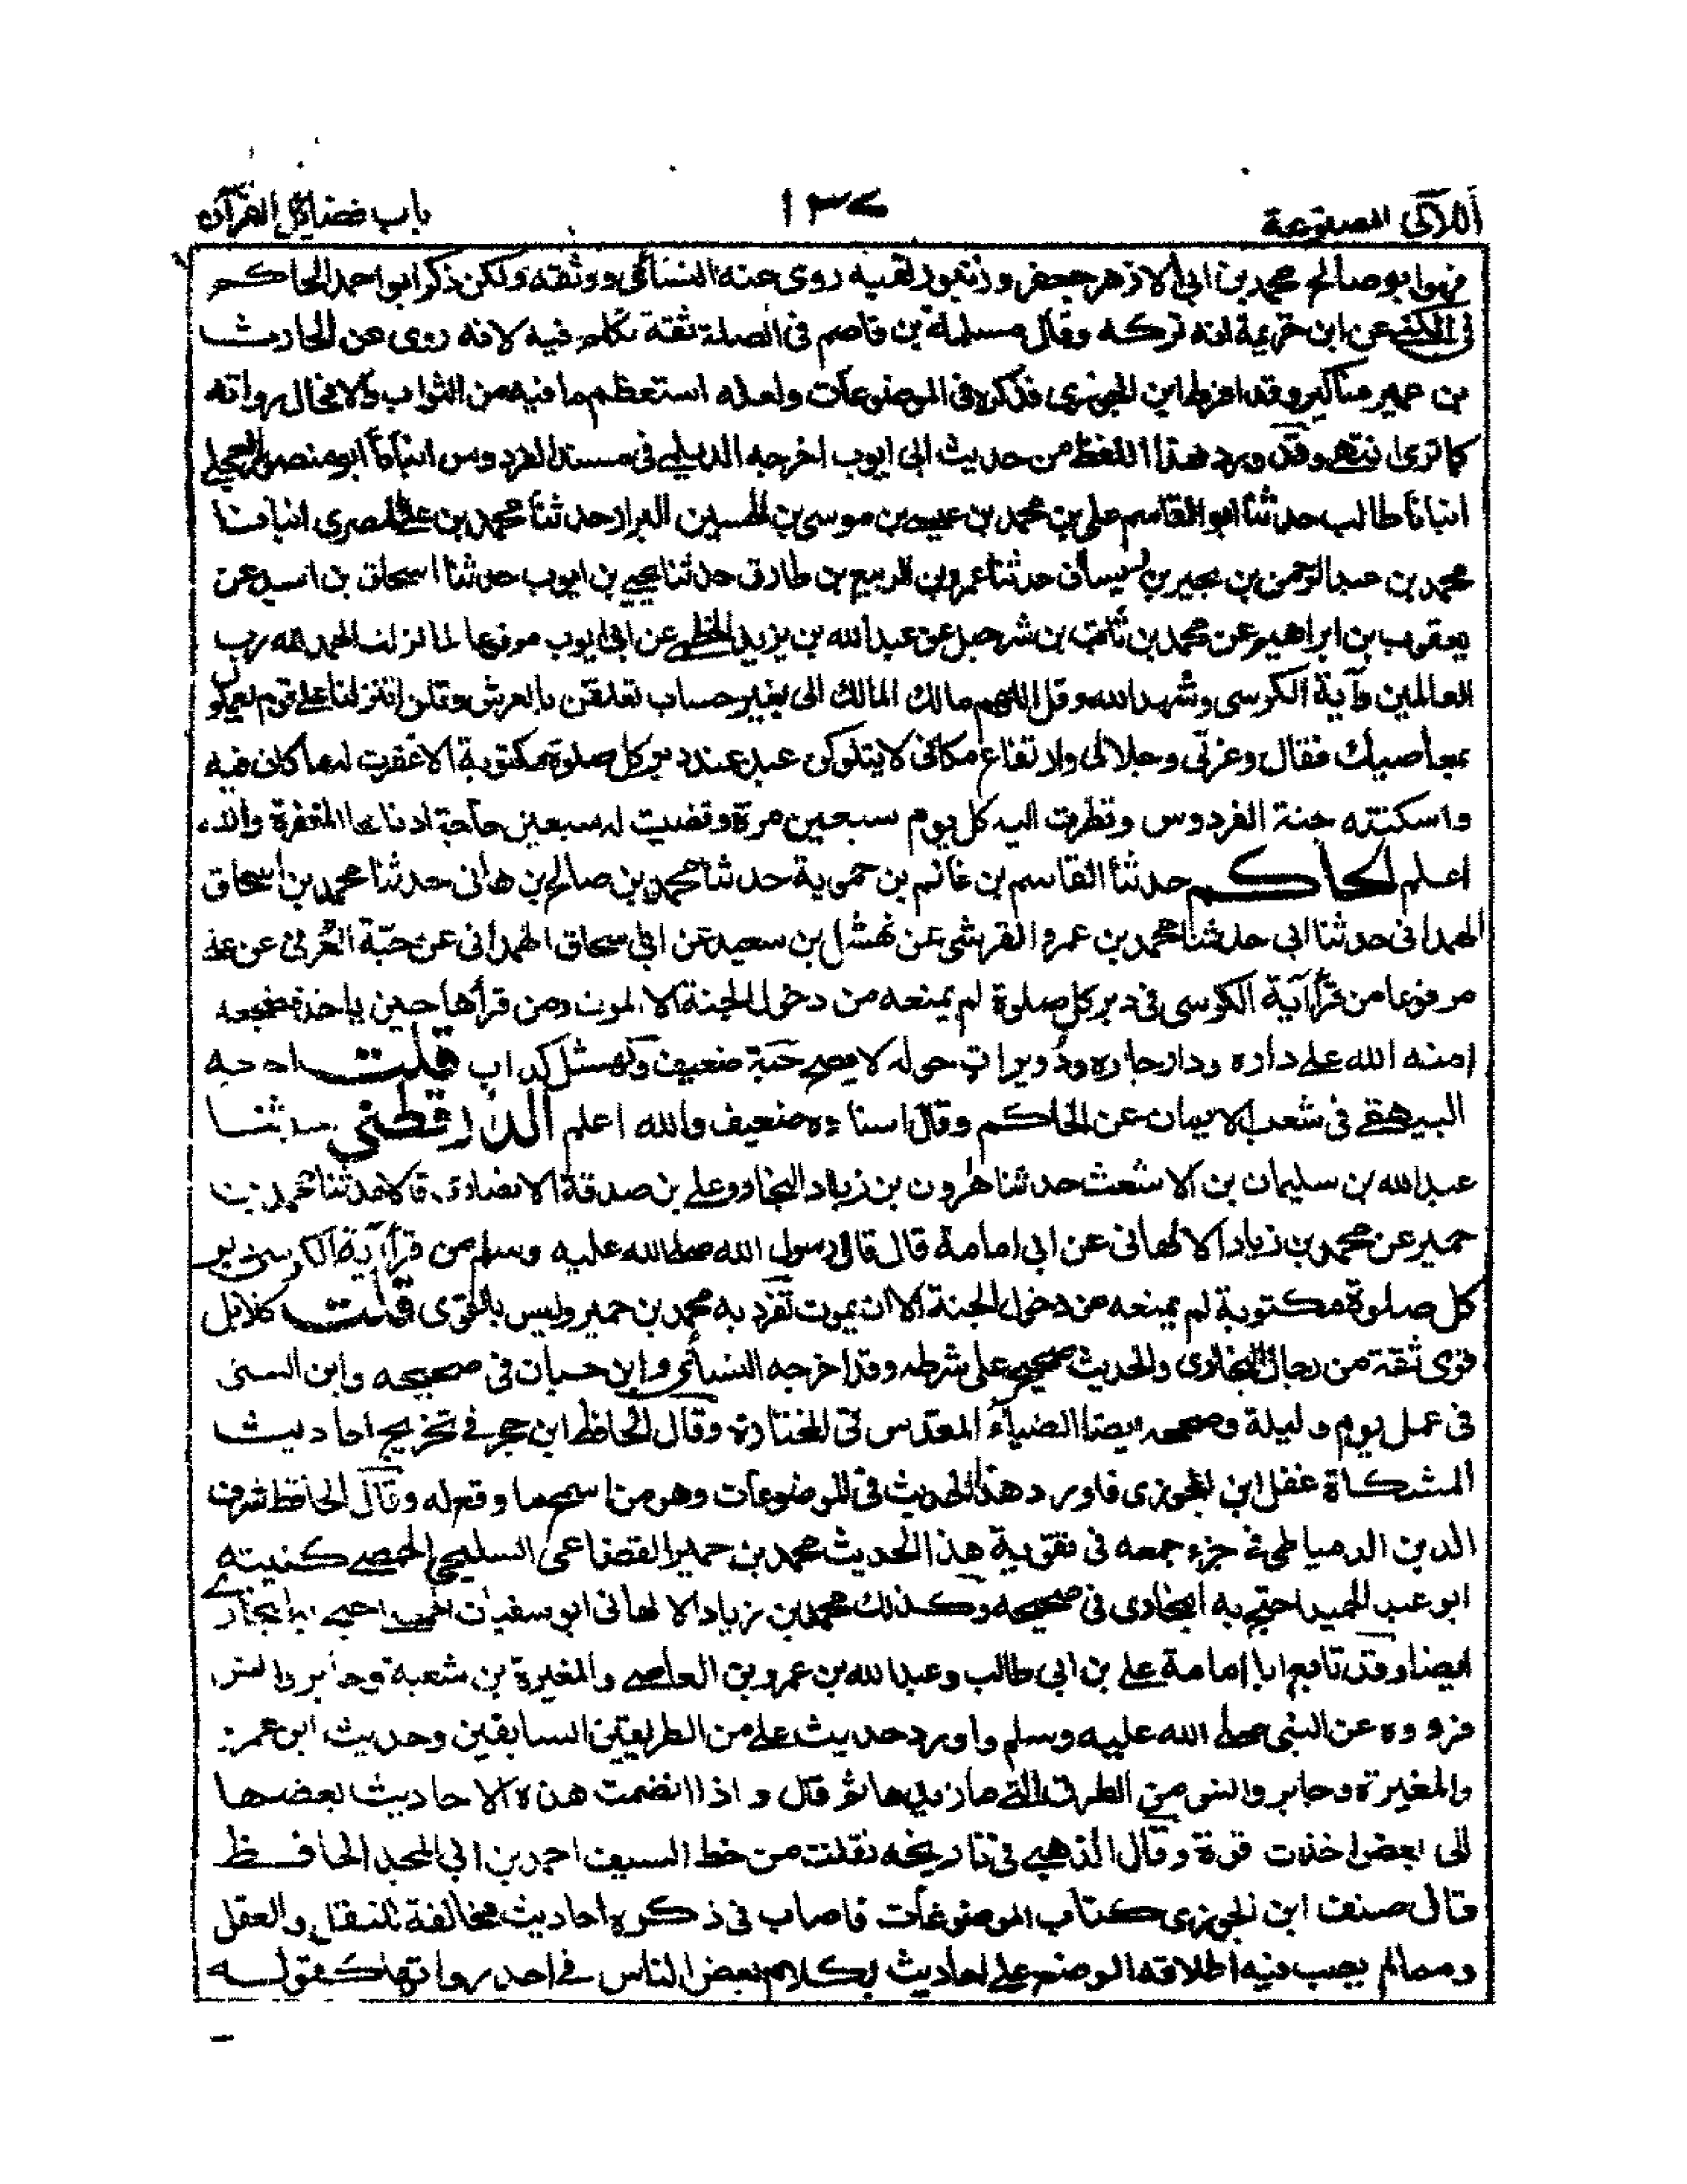 اللآلى المصنوعة ١٣٧ باب فضائل القرآن
فهوا ابو صالح محمد بن ابى الازهر جعفر وزنبور لقبه روى عنه النسائى ووثقه ولكن ذكر ابو احمد الحاكم
فى الكنى عن ابن خزيمة انه تركه وقال مسلمة بن قاسم فى الصلة ثقة تكلم فيه لانه روى عن الحارث
بن عمير مناكير وقد افرط ابن الجوزى فذكره فى الموضوعات ولعله استعظم ما فيه من الثواب والا فحال رواته
كما ترى انتهى وقد ورد هذا اللفظ من حديث ابى ايوب اخرجه الديلمى فى مسند الفردوس انبأنا ابو منصور العجلى
انبانا طالب حدثنا ابو القاسم على بن محمد بن عيسى بن موسى بن الحسين البزار حدثنا محمد بن على المصرى انبانا
محمد بن عبد الرحمن بن بحير بن ريسان حدثنا عمرو بن الربيع بن طارق حدثنا يحيى بن ايوب حدثنا اسحاق بن اسيد عن
يعقوب بن ابراهيم عن محمد بن ثابت بن شرحبيل عن عبد الله بن يزيد الخطمى عن ابى ايوب مرفوعا لما نزلت الحمد لله رب
العالمين وآية الكرسى وشهد الله وقل اللهم مالك المالك الى بغير حساب تعلقن بالعرش وقلن اتنزلنا على قوم يعملون
بمعاصيك فقال وعزتى وجلالى وارتفاع مكانى لا يتلوكن عبد عند دبر كل صلوة مكتوبة الا غفرت له ما كان فيه
واسكنته جنة الفردوس ونظرت اليه كل يوم سبعين مرة وقضيت له سبعين حاجة ادناها المغفرة والله
اعلم الحاكم حدثنا القاسم بن غانم بن حموية حدثنا محمد بن صالح بن هانى حدثنا محمد بن اسحاق
الهمدانى حدثنا ابى حدثنا محمد بن عمرو القرشى عن نهشل بن سعيد عن ابى اسحاق الهمدانى عن حبّة العُرنى عن على
مرفوعا من قرأ آية الكرسى فى دبر كل صلوة لم يمنعه من دخول الجنة الا الموت ومن قرأها حين ياخذ مضجعه
امنه الله على داره ودار جاره ودُويرات حوله لا يصح حبّة ضعيف ونهشل كذاب قلت اخرجه
البيهقى فى شعب الايمان عن الحاكم وقال اسناده ضعيف والله اعلم الدارقطنى حدثنا
عبد الله بن سليمان بن الاشعث حدثنا هارون بن زياد النجار وعلى بن صدقة الانصارى قالا حدثنا محمد بن
حمير عن محمد بن زياد الالهانى عن ابى امامة قال قال رسول الله صلى الله عليه وسلم من قرأ آية الكرسى دبر
كل صلوة مكتوبة لم يمنعه من دخول الجنة الا ان يموت تفرد به محمد بن حمير وليس بالقوى قلت كلا بل
قوى ثقة من رجال البخارى والحديث صحيح على شرطه وقد اخرجه النسائى وابن حبان فى صحيحه وابن السنى
فى عمل يوم وليلة وصححه ايضا الضياء المقدسى فى المختارة وقال الحافظ ابن حجر فى تخريج احاديث
المشكاة غفل ابن الجوزى فاورد هذا الحديث فى الموضوعات وهو من اسمج ما وقع له وقال الحافظ شرف
الدين الدمياطى فى جزء جمعه فى تقوية هذا الحديث محمد بن حمير القضاعى السليحى الحمصى كنيته
ابو عبد الحميد احتج به البخارى فى صحيحه وكذلك محمد بن زياد الالهانى ابو سفيان الحمصى احتج به البخارى
ايضا وقد تابع ابا امامة على بن ابى طالب وعبد الله بن عمرو بن العاصى والمغيرة بن شعبة وجابر وانس
فرووه عن النبى صلى الله عليه وسلم واورد حديث على من الطريقين السابقين وحديث ابن عمرو
والمغيرة وجابر وانس من الطرق التى ثم قال واذا انضمت هذه الاحاديث بعضها
الى بعض اخذت قوة وقال الذهبى فى تاريخه نقلت من خط السيف احمد بن ابى المجد الحافظ
قال صنف ابن الجوزى كتاب الموضوعات فاصاب فى ذكره احاديث مخالفة للنقل والعقل
ومما لم يصب فيه اطلاقه الوضع على احاديث بكلام بعض الناس فى احد رواتها كقوله